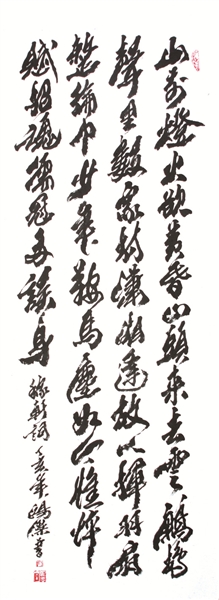 山前燈火欲黄昏山頭来去雲鷓鴣
聲里數家村瀟湘逢故人揮羽扇
整綸巾少年鞍馬塵如今憔悴
賦招魂儒冠多誤身 稼軒詞 丁亥年 書